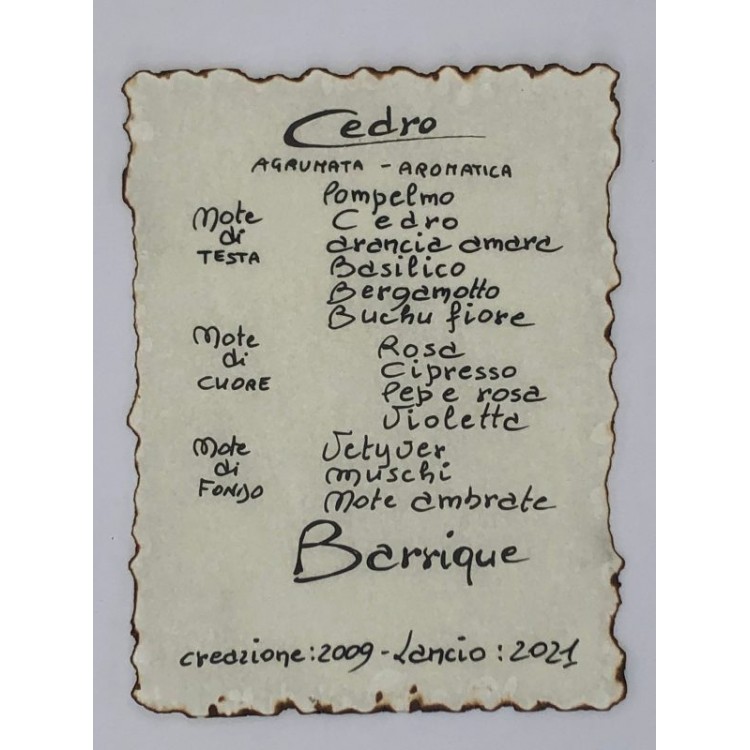 Cedro
AGRUMATA - AROMATICA
Note di TESTA
Pompelmo
Cedro
arancia amara
Basilico
Bergamotto
Buchu fiore
Note di CUORE
Rosa
Cipresso
Pepe rosa
Violetta
Note di FONDO
Vetyver
muschi
Note ambrate
Barrique
creazione: 2009 - Lancio: 2021